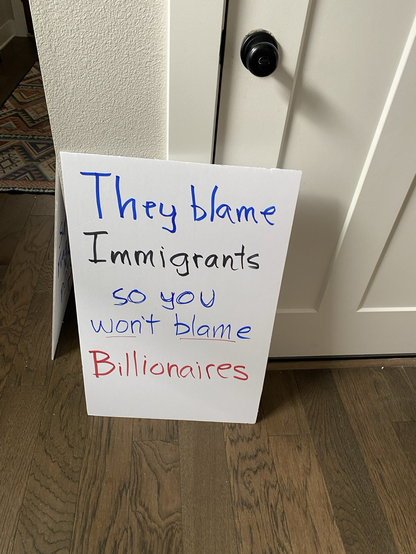 They blame
Immigrants
so you
won't blame
Billionaires